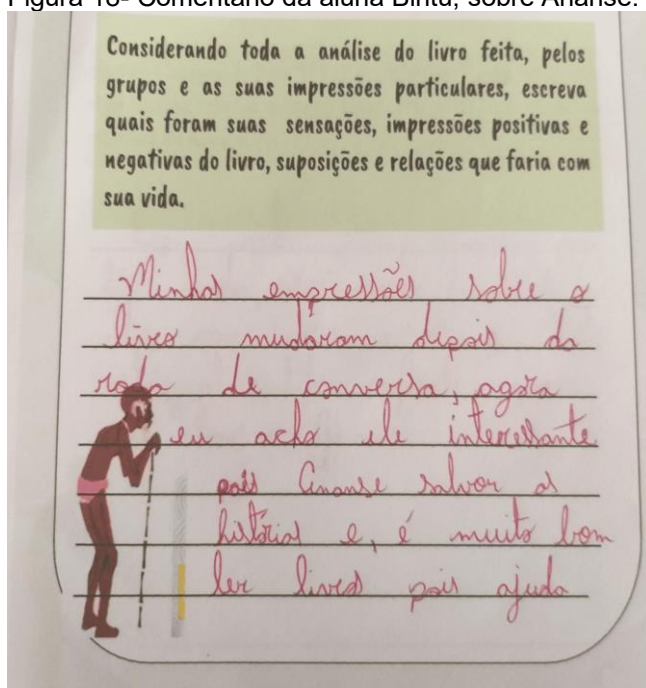 Figura 18- Comentário da aluna Bintu, sobre Ananse.
Considerando toda a análise do livro feita, pelos
grupos e as suas impressões particulares, escreva
quais foram suas sensações, impressões positivas e
negativas do livro, suposições e relações que faria com
sua vida.
Minhas empressões sobre o
livro mudaram depois da
roda de conversa, agora
eu acho ele interessante
pois Ananse salvou as
histórias e, é muito bom
ler livros pois ajuda